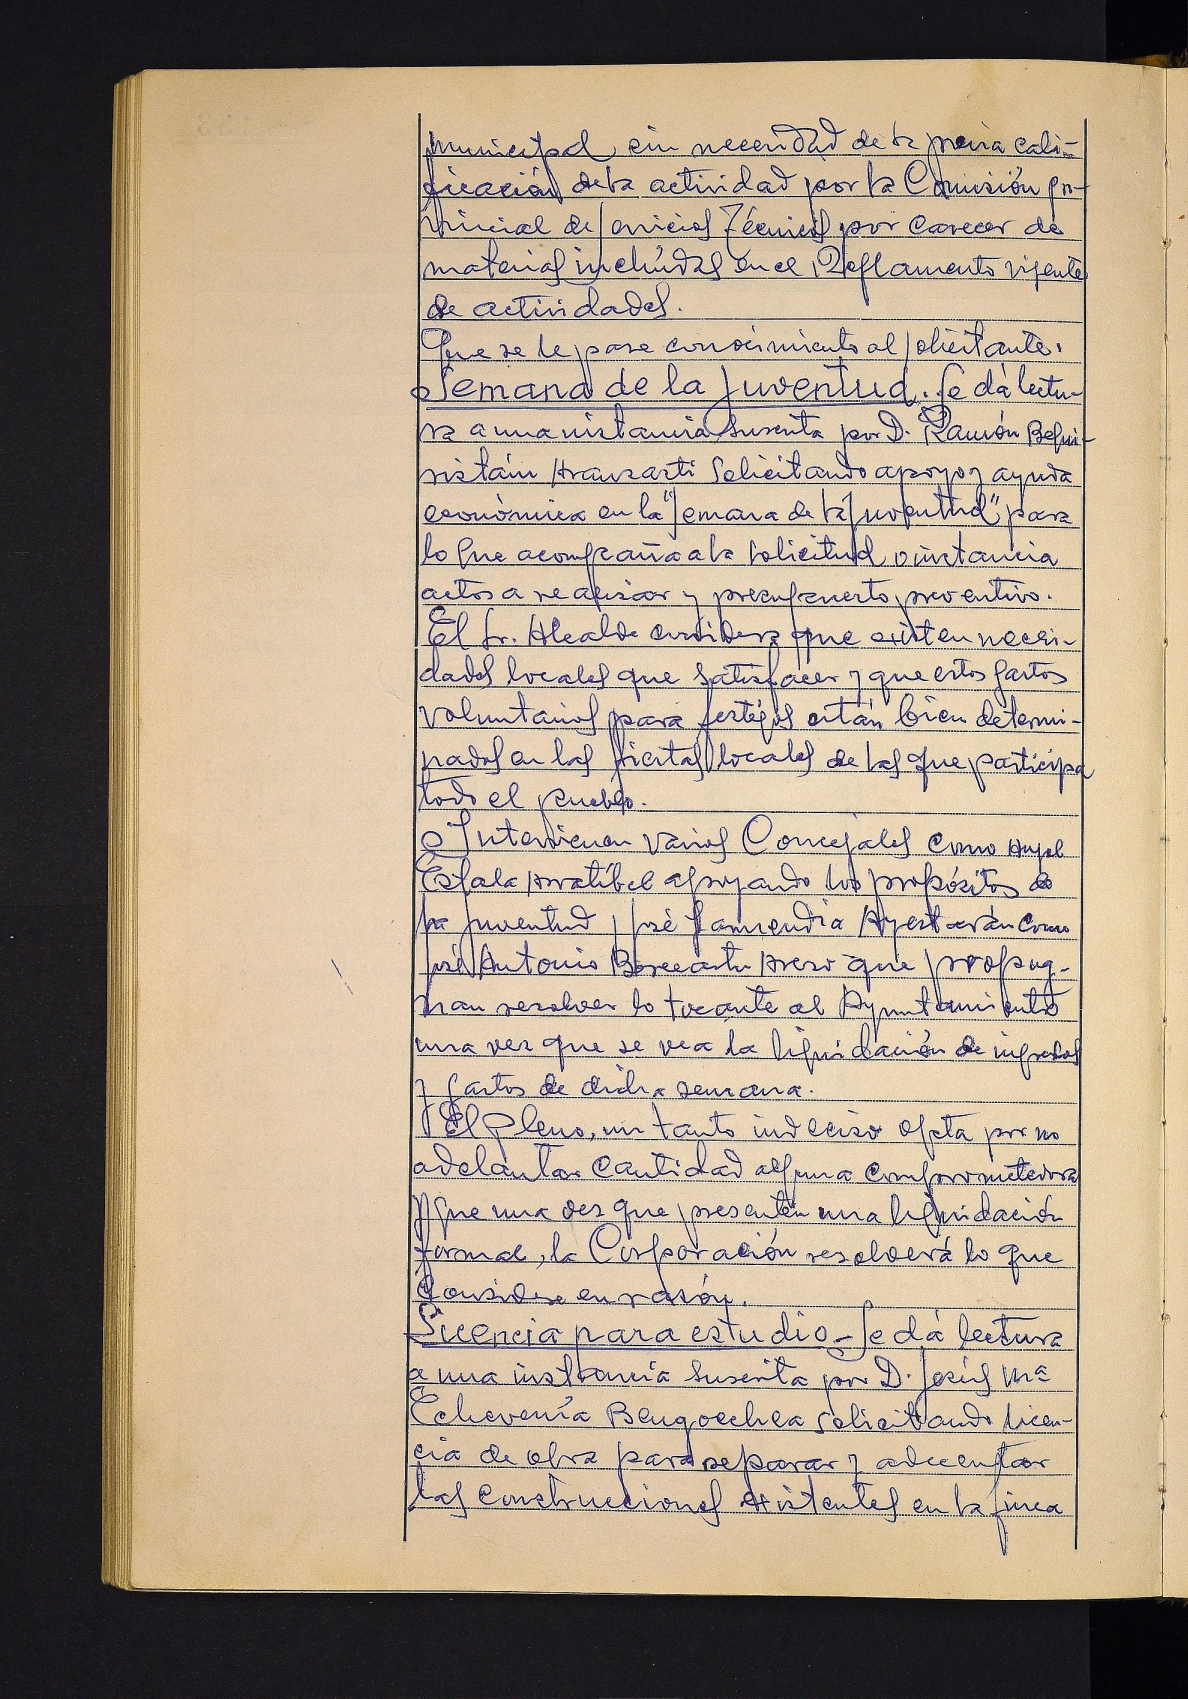 municipal sin necesidad de la previa cali-
ficación de la actividad por la Comisión pro-
vincial de Servicios Técnicos por carecer de
materias incluidas en el Reglamento vigente
de actividades.
Que se le pase conocimiento al solicitante.
Semana de la juventud. Se dá lectu-
ra a una instancia suscrita por D. Ramón Begui-
ristáin Aranzasti solicitando apoyo y ayuda
económica en la "Semana de la Juventud" para
lo que acompaña a la solicitud o instancia
actos a realizar y presupuesto preventivo.
El Sr. Alcalde considera que existen necesi-
dades locales que satisfacer y que estos gastos
voluntarios para festejos están bien determi-
nados en las fiestas locales de las que participa
todo el pueblo.
Intervienen varios Concejales como Angel
Eşcala Arratíbel apoyando los propósitos de
la juventud, José Garmendia Ayestarán como
José Antonio Berecartu Arezo que propug-
nan resolver lo tocante al Ayuntamiento
una vez que se vea la liquidación de ingresos
y gastos de dicha semana.
El Pleno, un tanto indeciso opta por no
adelantar cantidad alguna comprometedora
y que una vez que presenten una liquidación
formal, la Corporación resolverá lo que
considere en razón.
Licencia para estudio - Se dá lectura
a una instancia suscrita por D. Jesús Mª
Echeverría Bengoechea solicitando licen-
cia de obra para separar y adecentar
las construcciones existentes en la finca